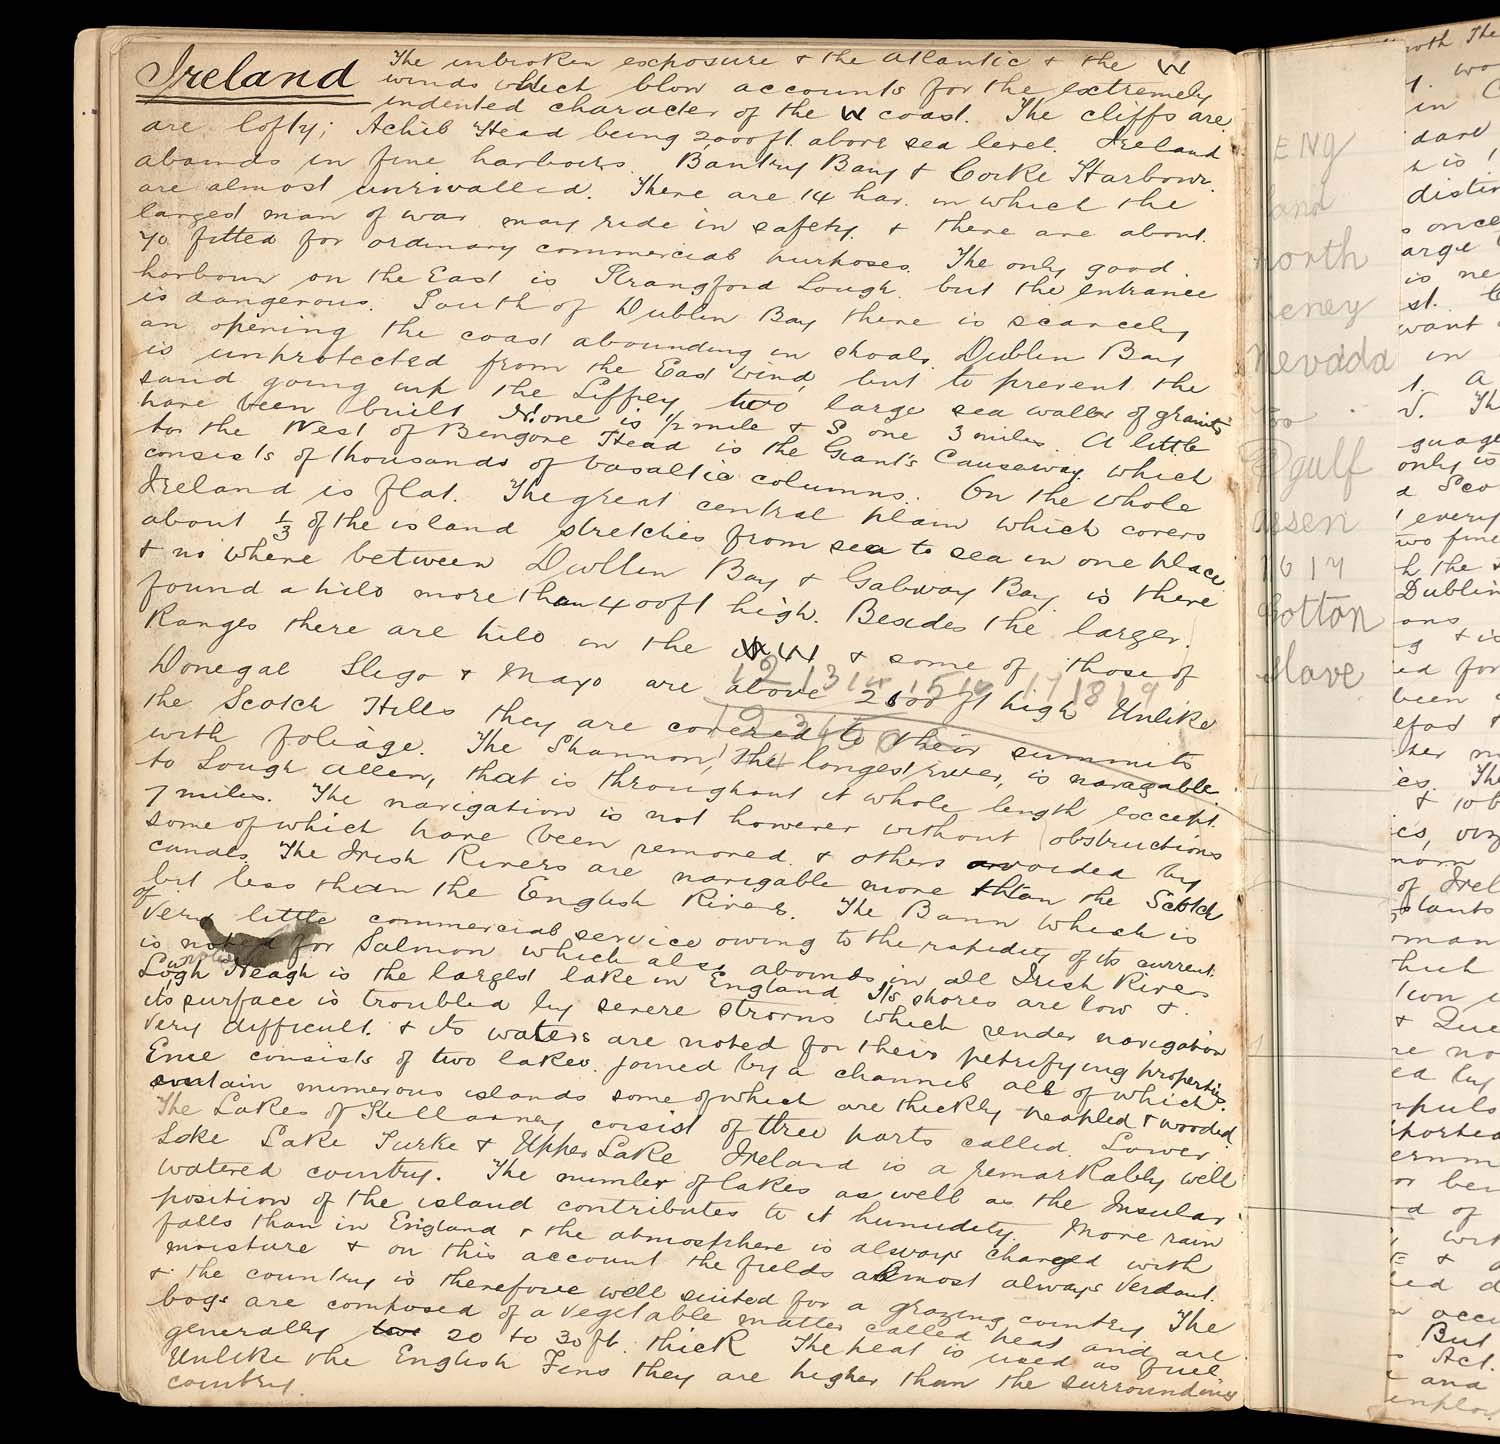 Ireland
The unbroken exposure & the Atlantic & the W
winds which blow accounts for the extremely
indented character of the W coast. The cliffs are
are lofty; Achil Head being 2,000 ft. above sea level. Ireland
abounds in fine harbours. Bantry Bay & Corke Harbour.
are almost unrivalled. There are 14 har. in which the
largest man of war may ride in safety. & there are about.
70 fitted for ordinary commercial purposes. The only good.
harbour on the East is Strangford Lough. but the entrance
is dangerous. South of Dublin Bay there is scarcely
an opening the coast abounding in shoals. Dublin Bay
is unprotected from the East wind, but to prevent the
sand going up the Liffey two large sea walls of granite
have been built N. one is 1/2 mile & S one 3 miles. A little
to the West of Bengore Head is the Giant's Causeway. which
consists of thousands of basaltic columns. On the whole
Ireland is flat. The great central plain which covers
about 1/3 of the island stretches from sea to sea in one place
& no where between Dublin Bay & Galway Bay. is there
found a hill more than 400 ft high. Besides the larger.
Ranges there are hills in the & some of those of
Donegal Sligo & Mayo are above 2000 ft high Unlike
12 13 14 15 16 17 18 19
the Scotch Hills they are covered to their summits
with foliage. The Shannon, the longest river, is navagable
to Lough Allen, that is throughout it whole length except.
7 miles. The navigation is not however without obstructions
some of which have been removed. & others avoided by
canals. The Irish Rivers are navigable more than the Scotch
but less than the English Rivers. The Bann which is
of
very little commercial service owing to the rapidity of its current
is noted for Salmon which also abounds in all Irish Rivers
noted
Lough Neagh is the largest lake in England Its shores are low &.
its surface is troubled by severe storms which render navigation
very difficult. & its waters are noted for their petrifying properties.
Erne consists of two lakes. joined by a channel all of which
contain numerous islands some of which are thickly peopled & wooded
The Lakes of Killarney consist of three parts called. Lower.
Lake Lake Turke & Upper Lake Ireland is a remarkably well
watered country. The number of lakes as well as the Insular
position of the island contributes to it humidity. More rain
falls than in England & the atmosphere is always charged with
moisture & on this account the fields almost always verdant.
& the country is therefore well suited for a grazing country. The
bogs are composed of a vegetable matter called peat and are
generally 20 to 30 ft. thick The peat is used as fuel
Unlike the English Fens they are higher than the surrounding
country.
ENg
land
north
Nevada
gulf
1617
Cotton
slave
in
distin
once
want
in
Th
guage
only is
Sco
every
h the
Dublin
& is
been
of Irel
& Que
But
Act.
and